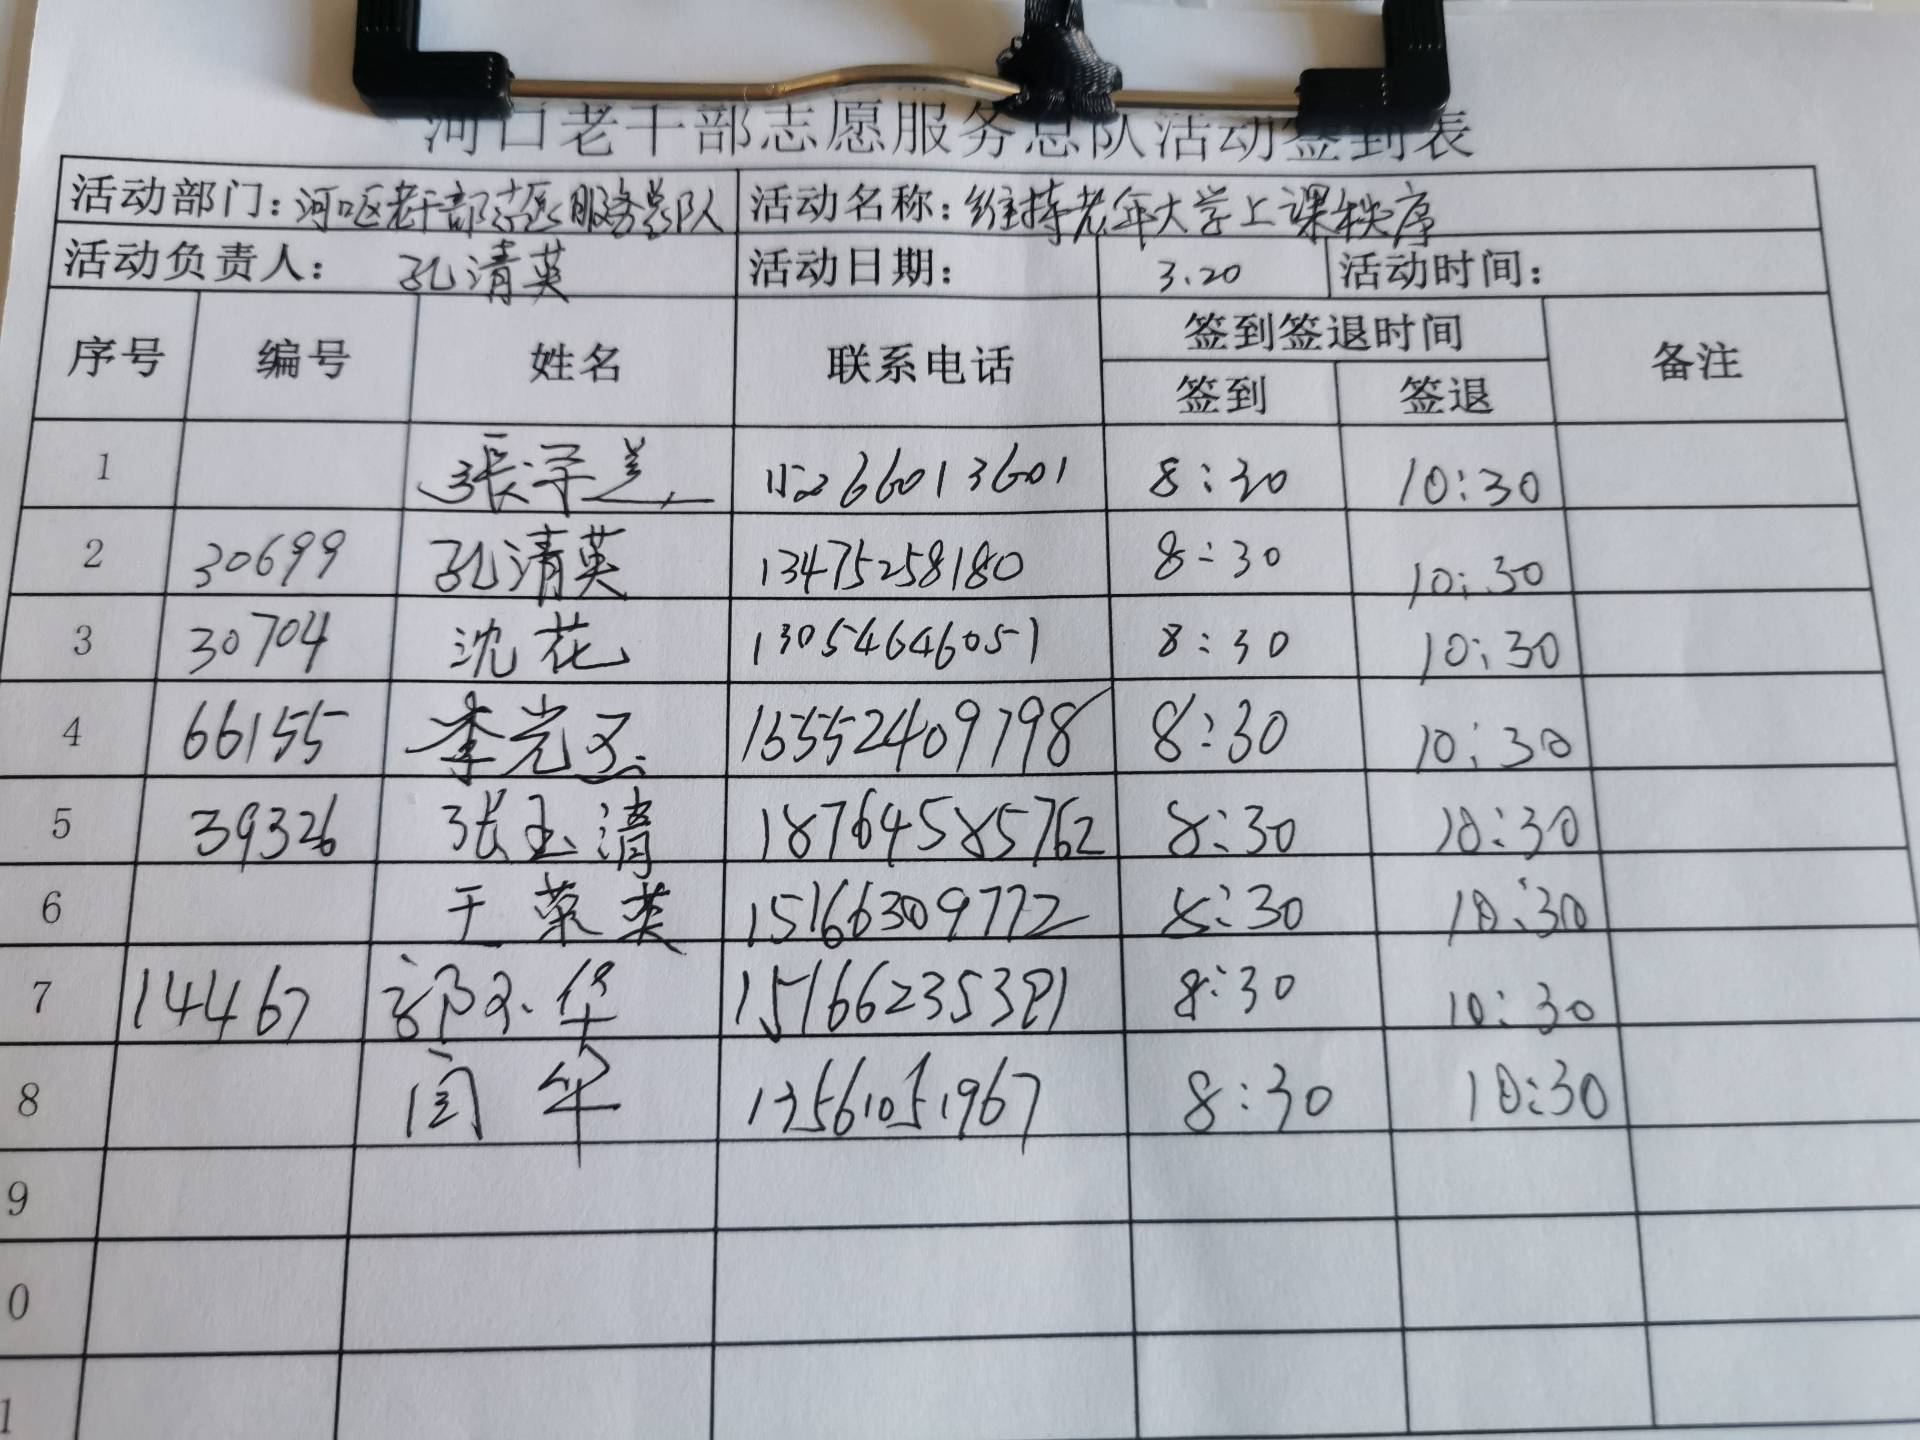 河口老干部志愿服务总队活动签到表
活动部门：河口区老干部志愿服务总队 活动名称：维持老年大学上课秩序
活动负责人： 孔清英 活动日期： 3.20 活动时间：
序号 编号 姓名 联系电话 签到签退时间 备注
签到 签退
1 15266013601 8:30 10:30
2 30699 孔清英 13475258180 8:30 10:30
3 30704 沈花 13054646051 8:30 10:30
4 66155 李光玉 15552409798 8:30 10:30
5 39326 张玉清 18764585762 8:30 10:30
6 王荣英 15166309772 8:30 10:30
7 14467 8:30 10:30
8 闫华 13561051967 8:30 10:30
9
0
1